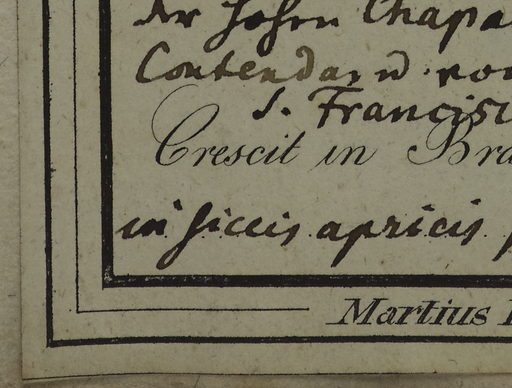 der hohen Chapa
Contendas, u von
S. Francisc
Crescit in Bra
in siccis apricis
Martius